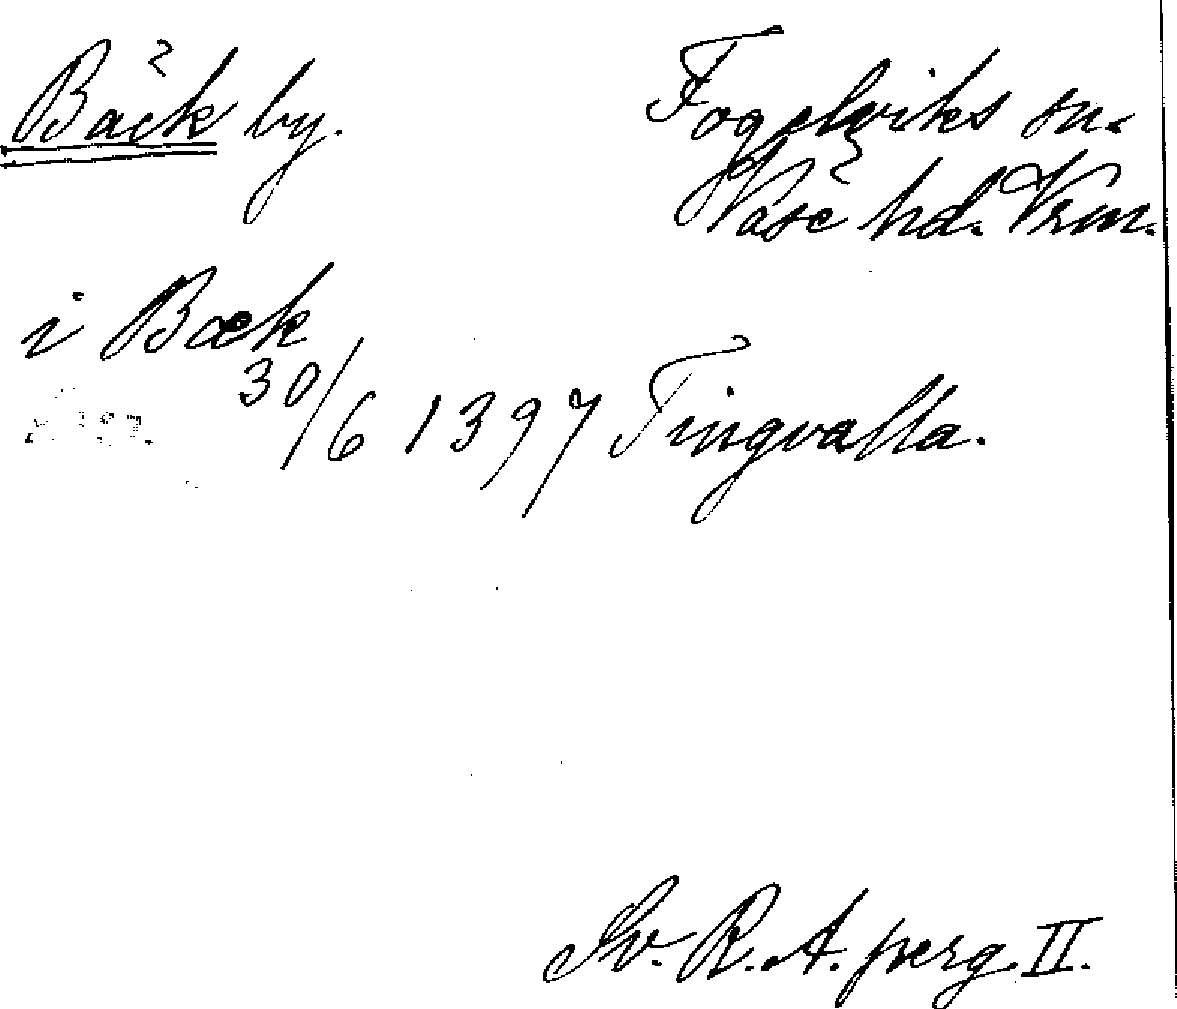 Bäck by.
Fogelviks sn.
Väse hd. Vrm.
i Bæk
30/6 1397 Tingvalla.
Sv. R. A. perg. II.